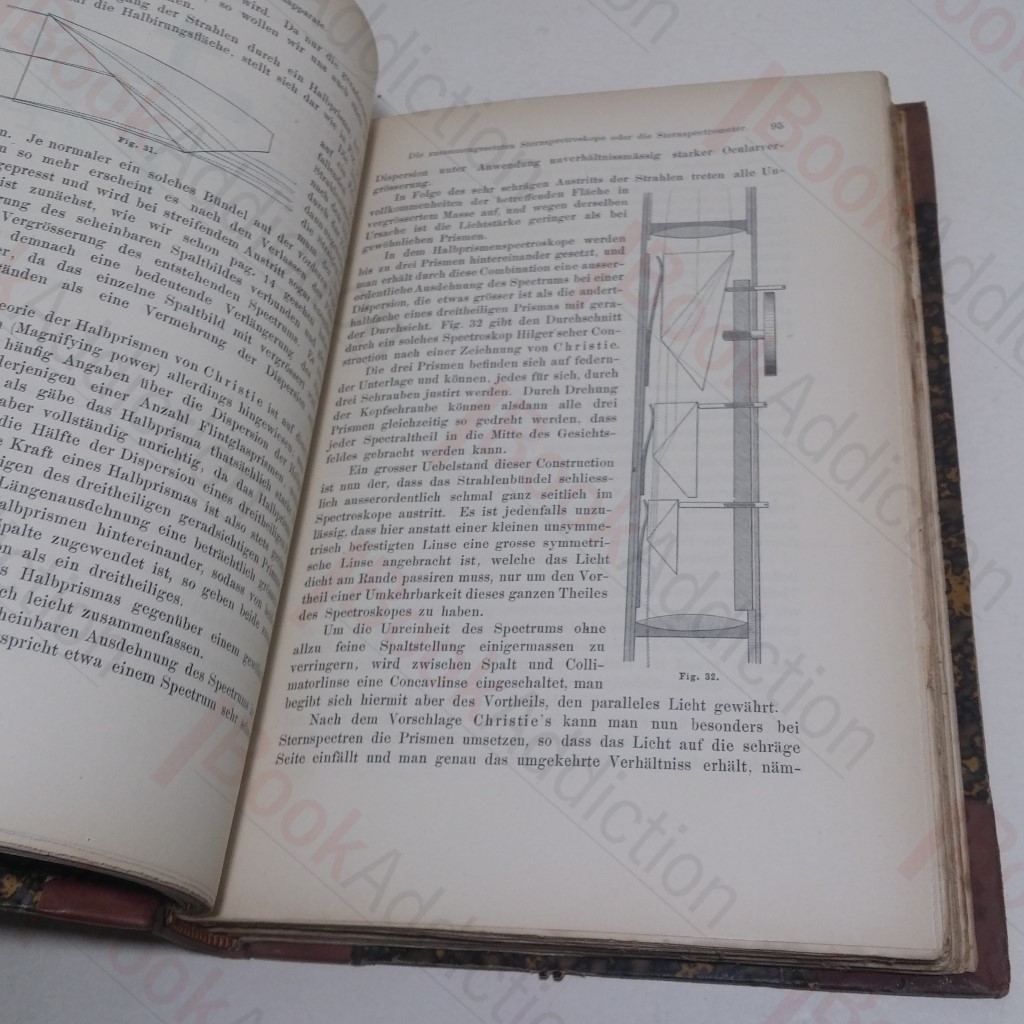 apparate.
wird. Da nur die
so wollen wir uns auch
gang der Strahlen durch ein Halbprisma
die Halbirungsfläche, stellt sich dar wie in
Fig. 31.
Je normaler ein solches Bündel auf der
so mehr erscheint es nach den Verlassen
gepresst und wird bei streifendem Austritt sogar
ist zunächst, wie wir schon pag. 14 gesehen
des scheinbaren Spaltbildes verbunden
Vergrösserung des entstehenden Spectrums.
demnach eine bedeutende Verlängerung
da das einzelne Spaltbild mit vergrössert
als eine Vermehrung der Dispersion
der Halbprismen von Christie ist auf
(Magnifying power) allerdings hingewiesen
häufig Angaben über die Dispersion der
derjenigen einer Anzahl Flintglasprismen
als gäbe das Halbprisma thatsächlich
aber vollständig unrichtig, da das
die Hälfte der Dispersion eines dreitheiligen
Kraft eines Halbprismas ist also stets
des dreitheiligen geradsichtigen
Längenausdehnung eine beträchtlich
hintereinander, sodass von
zugewendet ist, so geben beide
als ein dreitheiliges.
Halbprismas gegenüber einem
leicht zusammenfassen.
scheinbaren Ausdehnung des Spectrums
etwa einem Spectrum sehr
Die zusammengesetzten Sternspectroskope oder die Sternspectrometer. 95
Dispersion unter Anwendung unverhältnissmässig starker Ocularver-
grösserung.
In Folge des sehr schrägen Austritts der Strahlen treten alle Un-
vollkommenheiten der betreffenden Fläche in
vergrössertem Masse auf, und wegen derselben
Ursache ist die Lichtstärke geringer als bei
gewöhnlichen Prismen.
In dem Halbprismenspectroskope werden
bis zu drei Prismen hintereinander gesetzt, und
man erhält durch diese Combination eine ausser-
ordentliche Ausdehnung des Spectrums bei einer
Dispersion, die etwas grösser ist als die andert-
halbfache eines dreitheiligen Prismas mit gera-
der Durchsicht. Fig. 32 gibt den Durchschnitt
durch ein solches Spectroskop Hilger'scher Con-
struction nach einer Zeichnung von Christie.
Die drei Prismen befinden sich auf federn-
der Unterlage und können, jedes für sich, durch
drei Schrauben justirt werden. Durch Drehung
der Kopfschraube können alsdann alle drei
Prismen gleichzeitig so gedreht werden, dass
jeder Spectraltheil in die Mitte des Gesichts-
feldes gebracht werden kann.
Ein grosser Uebelstand dieser Construction
ist nun der, dass das Strahlenbündel schliess-
lich ausserordentlich schmal ganz seitlich im
Spectroskope austritt. Es ist jedenfalls unzu-
lässig, dass hier anstatt einer kleinen unsymme-
trisch befestigten Linse eine grosse symmetri-
sche Linse angebracht ist, welche das Licht
dicht am Rande passiren muss, nur um den Vor-
theil einer Umkehrbarkeit dieses ganzen Theiles
des Spectroskopes zu haben.
Um die Unreinheit des Spectrums ohne
allzu feine Spaltstellung einigermassen zu
verringern, wird zwischen Spalt und Colli-
matorlinse eine Concavlinse eingeschaltet, man
Fig. 32.
begibt sich hiermit aber des Vortheils, den paralleles Licht gewährt.
Nach dem Vorschlage Christie's kann man nun besonders bei
Sternspectren die Prismen umsetzen, so dass das Licht auf die schräge
Seite einfällt und man genau das umgekehrte Verhältniss erhält, näm-
BookAddiction